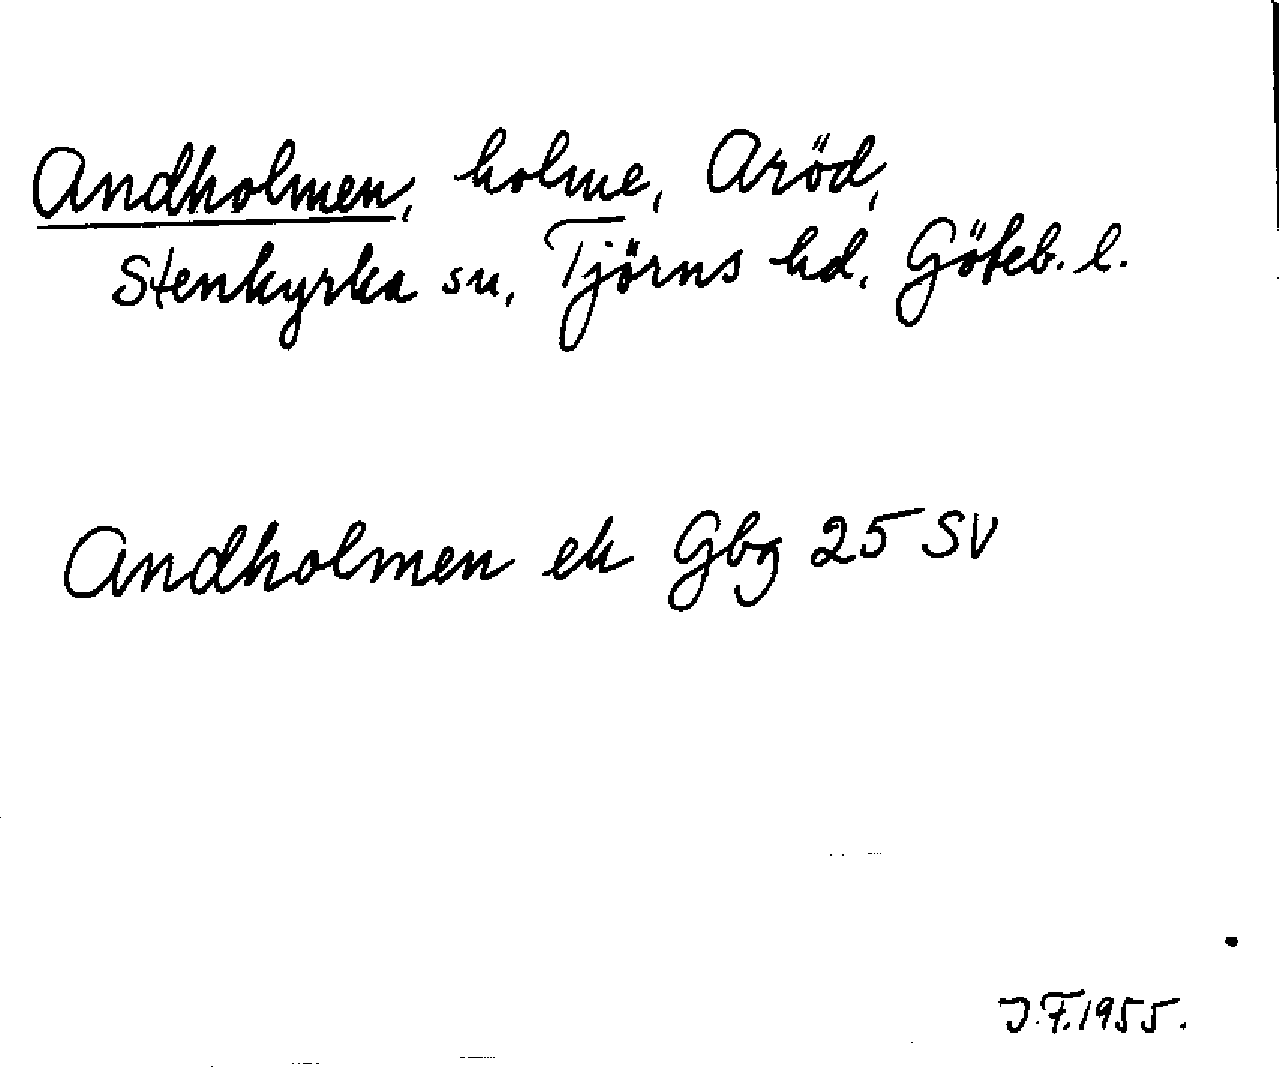 Andholmen, holme, Aröd,
Stenkyrka sn, Tjörns hd, Göteb. l.
Andholmen ek Gbg 25 SV
J.F. 1955.